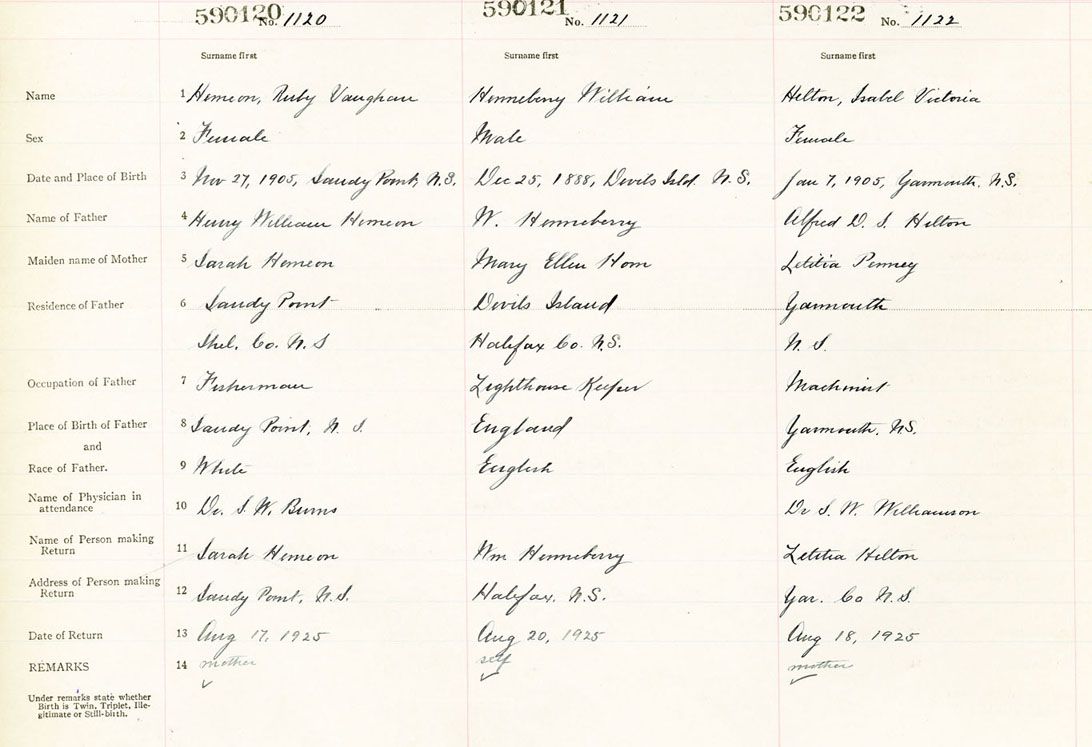 590120 No. 1120 590121 No. 1121 590122 No. 1122
Surname first Surname first Surname first
Name 1 Hemeon, Ruby Vaughan Henneberry William Hilton, Isabel Victoria
Sex 2 Female Male Female
Date and Place of Birth 3 Nov 27, 1905, Sandy Point, N.S. Dec 25, 1888, Devils Isld. N.S. Jan 7, 1905, Yarmouth, N.S.
Name of Father 4 Henry William Hemeon W. Henneberry Alfred D. S. Hilton
Maiden name of Mother 5 Sarah Hemeon Mary Ellen Horn Letitia Penney
Residence of Father 6 Sandy Point Devils Island Yarmouth
Shel. Co. N.S Halifax Co. N.S. N.S.
Occupation of Father 7 Fisherman Lighthouse Keeper Machinist
Place of Birth of Father 8 Sandy Point, N.S. England Yarmouth. N.S.
and
Race of Father. 9 White English English
Name of Physician in
attendance 10 Dr. S. W. Burns Dr S. W. Williamson
Name of Person making
Return 11 Sarah Hemeon Wm Henneberry Letitia Hilton
Address of Person making
Return 12 Sandy Point, N.S. Halifax. N.S. Yar. Co N.S.
Date of Return 13 Aug 17, 1925 Aug 20, 1925 Aug 18, 1925
REMARKS 14 mother self mother
Under remarks state whether
Birth is Twin, Triplet, Ille-
gitimate or Still-birth.